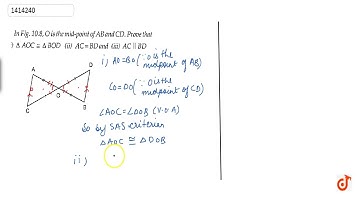 1414240
In Fig. 10.8, O is the mid-point of AB and CD. Prove that
i) △ AOC ≅ △ BOD (ii) AC = BD and (iii) AC || BD
A
D
O
C
B
i) AO = BO (∵ O is the
midpoint of AB)
CO = DO (∵ O is the
midpoint of CD)
∠AOC = ∠DOB (V.O.A)
So by SAS criterion
△AOC ≅ △DOB
ii)